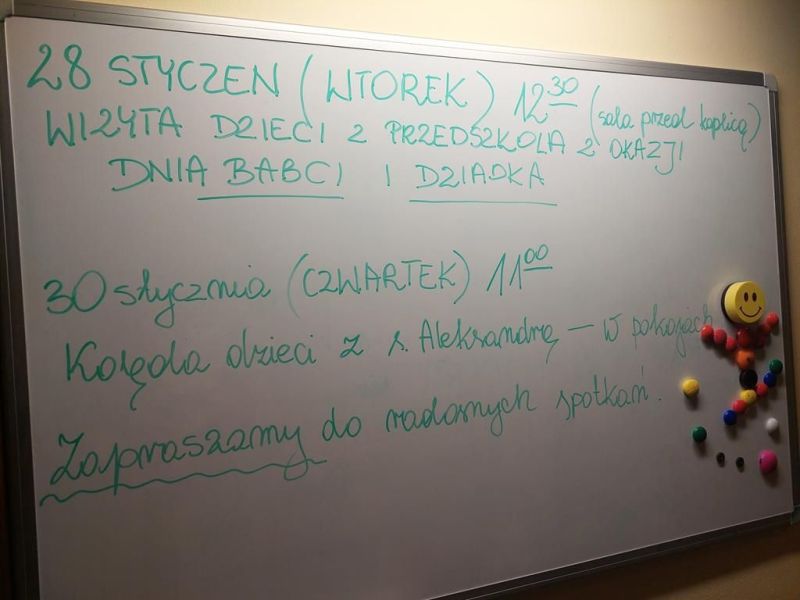 28 STYCZEN (WTOREK) 12 30 (sala przed kaplicą)
WIZYTA DZIECI Z PRZEDSZKOLA Z OKAZJI
DNIA BABCI I DZIADKA
30 stycznia (CZWARTEK) 11 00
Kolęda dzieci z s. Aleksandrą — w pokojach
Zapraszamy do radosnych spotkań.